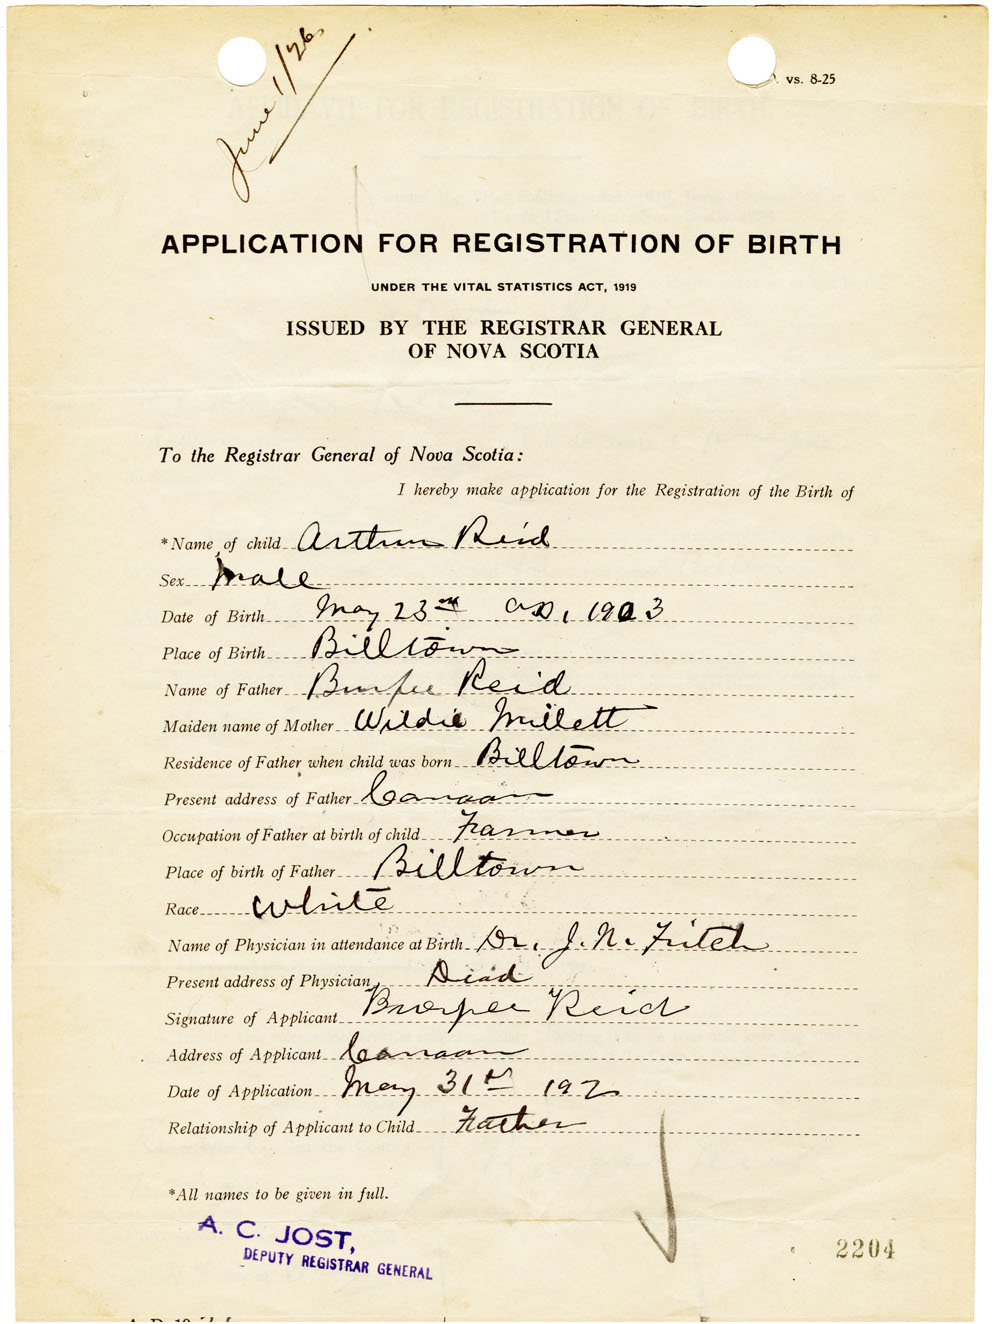 June 1/26
vs. 8-25
APPLICATION FOR REGISTRATION OF BIRTH
UNDER THE VITAL STATISTICS ACT, 1919
ISSUED BY THE REGISTRAR GENERAL
OF NOVA SCOTIA
To the Registrar General of Nova Scotia:
I hereby make application for the Registration of the Birth of
*Name of child Arthur Reid
Sex Male
Date of Birth May 23rd A.D. 1903
Place of Birth Billtown
Name of Father Burpee Reid
Maiden name of Mother Wildie Millett
Residence of Father when child was born Billtown
Present address of Father Canaan
Occupation of Father at birth of child Farmer
Place of birth of Father Billtown
Race White
Name of Physician in attendance at Birth Dr. J. N. Fitch
Present address of Physician Dead
Signature of Applicant Burpee Reid
Address of Applicant Canaan
Date of Application May 31st 192
Relationship of Applicant to Child Father
*All names to be given in full.
A. C. JOST,
DEPUTY REGISTRAR GENERAL
2204